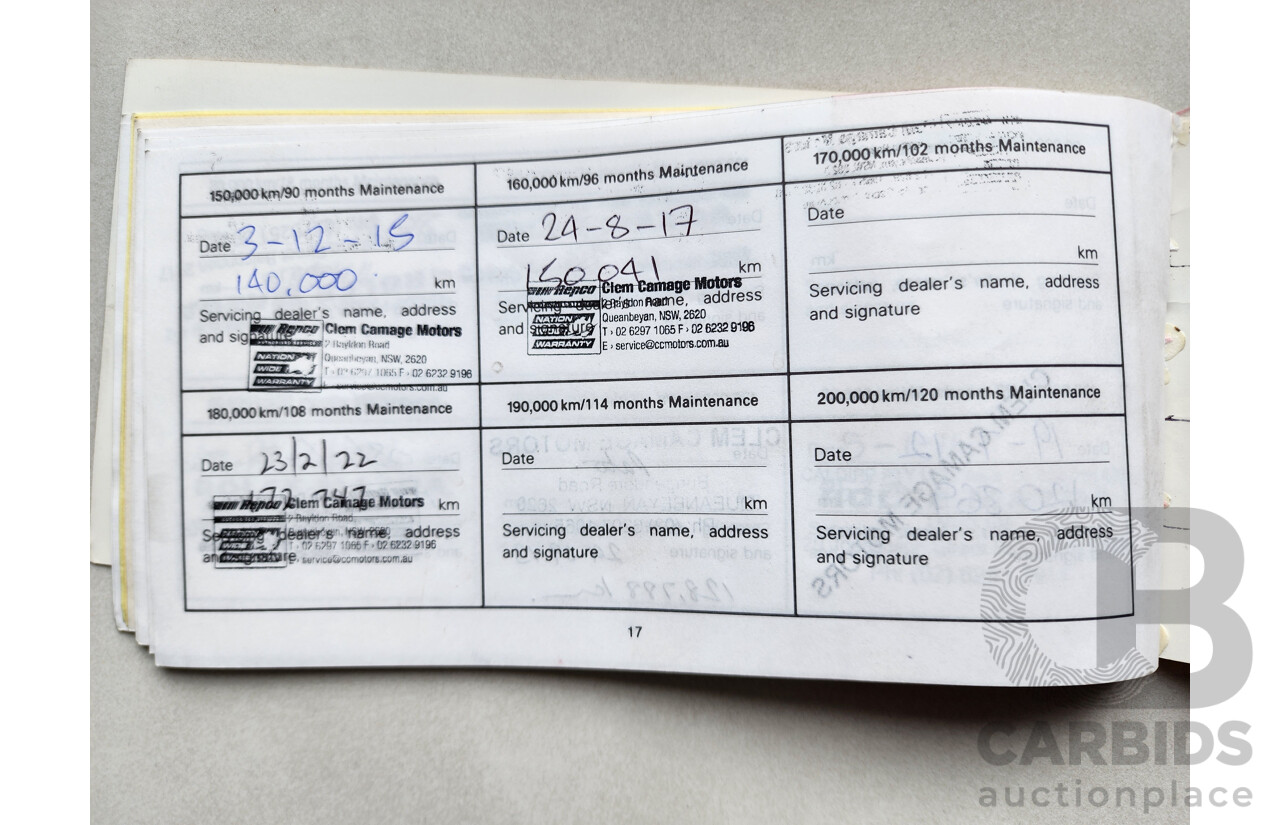 150,000 km/90 months Maintenance
Date 3-12-15
140,000 km
Servicing dealer's name, address
and signature
Repco Clem Camage Motors
2 Bayldon Road
NATION Queanbeyan, NSW, 2620
WIDE T › 02 6297 1065 F › 02 6232 9196
WARRANTY service@ccmotors.com.au
160,000 km/96 months Maintenance
Date 24-8-17
150 041 km
Servicing dealer's name, address
and signature
Repco Clem Camage Motors
2 Bayldon Road
NATION Queanbeyan, NSW, 2620
T › 02 6297 1065 F › 02 6232 9196
WARRANTY E › service@ccmotors.com.au
170,000 km/102 months Maintenance
Date
km
Servicing dealer's name, address
and signature
180,000 km/108 months Maintenance
Date 23/2/22
km
Servicing dealer's name, address
and signature
Repco Clem Camage Motors
2 Bayldon Road,
T › 02 6297 1065 F › 02 6232 9196
service@ccmotors.com.au
190,000 km/114 months Maintenance
Date
km
Servicing dealer's name, address
and signature
200,000 km/120 months Maintenance
Date
km
Servicing dealer's name, address
and signature
17
CB
CARBIDS
auctionplace